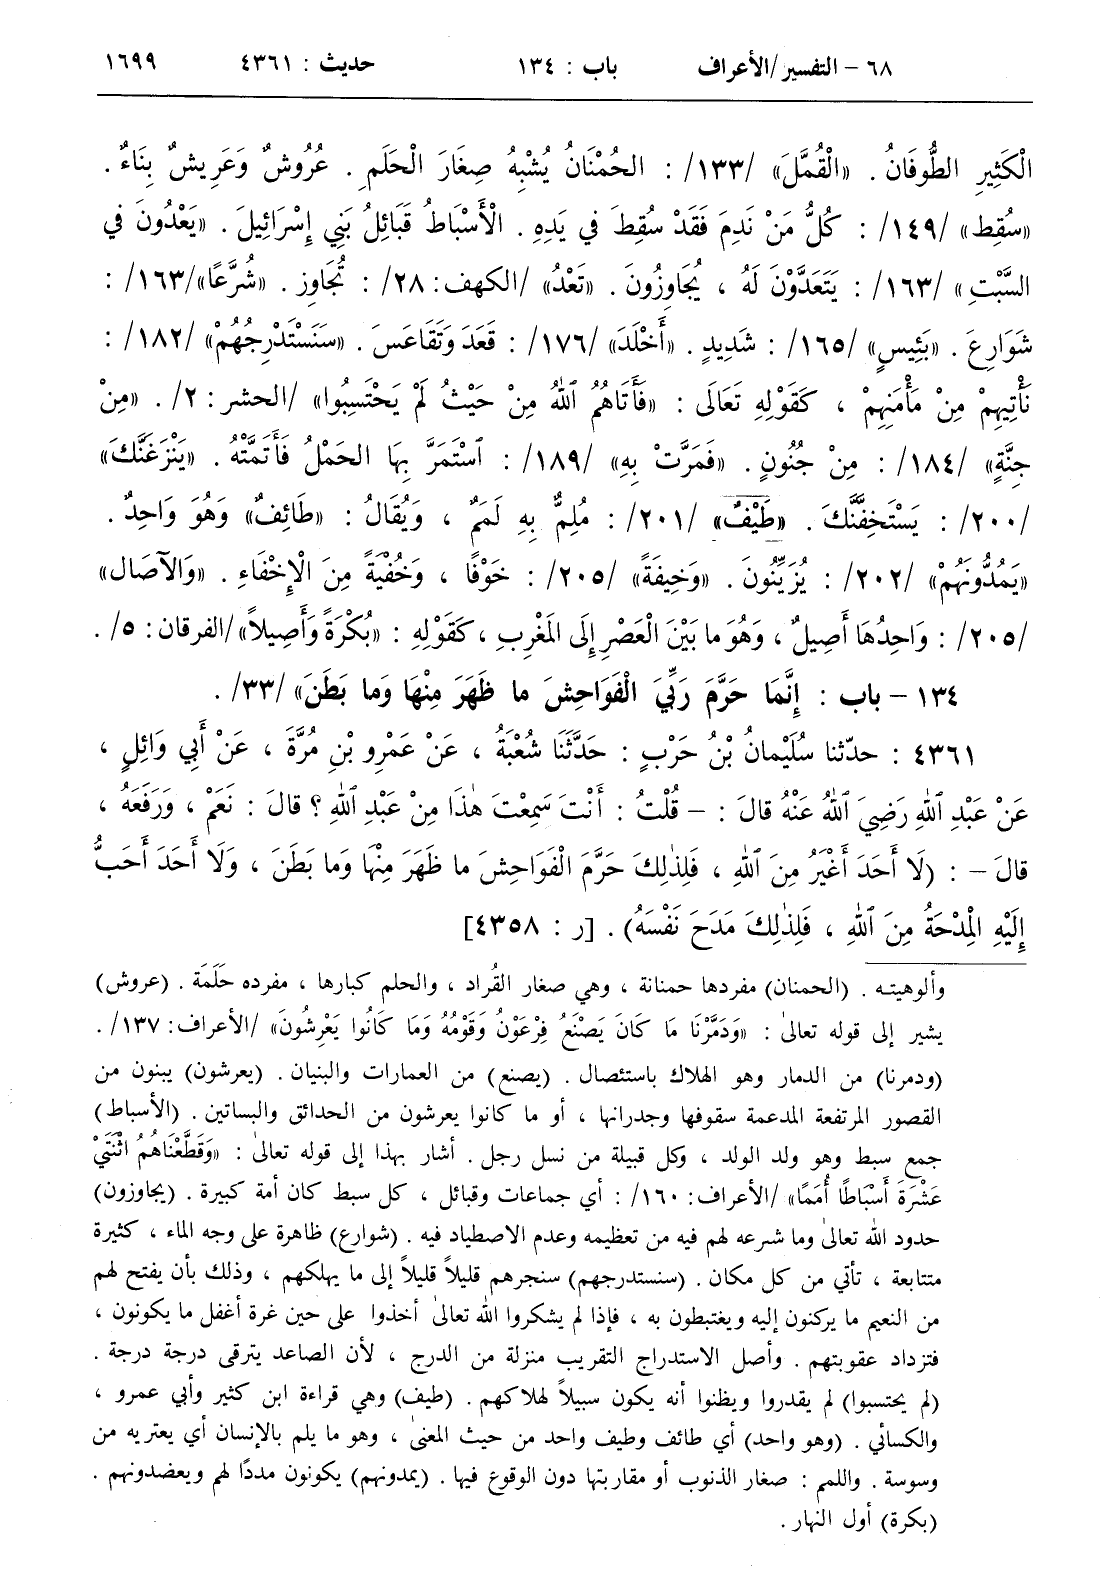 ٦٨ – التفسير/الأعراف باب : ١٣٤ حديث : ٤٣٦١ ١٦٩٩
الْكَثِيرِ الطُّوفَانُ . «الْقُمَّلَ» /١٣٣/ : الحُمْنَانُ يُشْبِهُ صِغَارَ الْحَلَمِ . عُرُوشٌ وَعَرِيشٌ بِنَاءٌ .
«سُقِطَ» /١٤٩/ : كُلُّ مَنْ نَدِمَ فَقَدْ سُقِطَ في يَدِهِ . الْأَسْبَاطُ قَبَائِلُ بَنِي إِسْرَائِيلَ . «يَعْدُونَ في
السَّبْتِ» /١٦٣/ : يَتَعَدَّوْنَ لَهُ ، يُجَاوِزُونَ . «تَعْدُ» /الكهف : ٢٨/ : تُجَاوِز . «شُرَّعًا»/١٦٣/ :
شَوَارِعَ . «بَئِيسٍ» /١٦٥/ : شَدِيدٍ . «أَخْلَدَ» /١٧٦/ : قَعَدَ وَتَقَاعَسَ . «سَنَسْتَدْرِجُهُمْ» /١٨٢/ :
نَأْتِيهِمْ مِنْ مَأْمَنِهِمْ ، كَقَوْلِهِ تَعَالَى : «فَأَتَاهُمُ ٱللهُ مِنْ حَيْثُ لَمْ يَحْتَسِبُوا» /الحشر : ٢/ . «مِنْ
جِنَّةٍ» /١٨٤/ : مِنْ جُنُونٍ . «فَمَرَّتْ بِهِ» /١٨٩/ : ٱسْتَمَرَّ بِهَا الحَمْلُ فَأَتَمَّتْهُ . «يَنْزَغَنَّكَ»
/٢٠٠/ : يَسْتَخِفَّنَّكَ . «طَيْفٌ» /٢٠١/ : مُلِمٌّ بِهِ لَمَمٌ ، وَيُقَالُ : «طَائِفٌ» وَهُوَ وَاحِدٌ .
«يَمُدُّونَهُمْ» /٢٠٢/ : يُزَيِّنُونَ . «وَخِيفَةً» /٢٠٥/ : خَوْفًا ، وَخُفْيَةً مِنَ الْإِخْفَاءِ . «وَالآصَالِ»
/٢٠٥/ : وَاحِدُهَا أَصِيلٌ ، وَهُوَ ما بَيْنَ الْعَصْرِ إِلَى المَغْرِبِ ، كَقَوْلِهِ : «بُكْرَةً وَأَصِيلاً»/الفرقان : ٥/ .
١٣٤ – باب : إِنَّمَا حَرَّمَ رَبِّيَ الْفَوَاحِشَ ما ظَهَرَ مِنْهَا وَما بَطَنَ» /٣٣/ .
٤٣٦١ : حدّثنا سُلَيْمانُ بْنُ حَرْبٍ : حَدَّثَنَا شُعْبَةُ ، عَنْ عَمْرِو بْنِ مُرَّةَ ، عَنْ أَبِي وَائِلٍ ،
عَنْ عَبْدِ ٱللهِ رَضِيَ ٱللهُ عَنْهُ قالَ : – قُلْتُ : أَنْتَ سَمِعْتَ هٰذَا مِنْ عَبْدِ ٱللهِ ؟ قالَ : نَعَمْ ، وَرَفَعَهُ ،
قالَ – : (لَا أَحَدَ أَغْيَرُ مِنَ ٱللهِ ، فَلِذٰلِكَ حَرَّمَ الْفَوَاحِشَ ما ظَهَرَ مِنْهَا وَما بَطَنَ ، وَلَا أَحَدَ أَحَبُّ
إِلَيْهِ الْمِدْحَةُ مِنَ ٱللهِ ، فَلِذٰلِكَ مَدَحَ نَفْسَهُ) . [ر : ٤٣٥٨]
وألوهيته . (الحمنان) مفردها حمنانة ، وهي صغار القُراد ، والحلم كبارها ، مفرده حَلَمَة . (عروش)
يشير إلى قوله تعالىٰ : «وَدَمَّرْنَا مَا كَانَ يَصْنَعُ فِرْعَوْنُ وَقَوْمُهُ وَمَا كَانُوا يَعْرِشُونَ» /الأعراف : ١٣٧/ .
(ودمرنا) من الدمار وهو الهلاك باستئصال . (يصنع) من العمارات والبنيان . (يعرشون) يبنون من
القصور المرتفعة المدعمة سقوفها وجدرانها ، أو ما كانوا يعرشون من الحدائق والبساتين . (الأسباط)
جمع سبط وهو ولد الولد ، وكل قبيلة من نسل رجل . أشار بهذا إلى قوله تعالىٰ : «وَقَطَّعْنَاهُمُ اثْنَتَيْ
عَشْرَةَ أَسْبَاطًا أُمَمًا» /الأعراف : ١٦٠/ : أي جماعات وقبائل ، كل سبط كان أمة كبيرة . (يجاوزون)
حدود الله تعالىٰ وما شرعه لهم فيه من تعظيمه وعدم الاصطياد فيه . (شوارع) ظاهرة على وجه الماء ، كثيرة
متتابعة ، تأتي من كل مكان . (سنستدرجهم) سنجرهم قليلاً قليلاً إلى ما يهلكهم ، وذلك بأن يفتح لهم
من النعيم ما يركنون إليه ويغتبطون به ، فإذا لم يشكروا الله تعالىٰ أخذوا على حين غرة أغفل ما يكونون ،
فتزداد عقوبتهم . وأصل الاستدراج التقريب منزلة من الدرج ، لأن الصاعد يترقى درجة درجة .
(لم يحتسبوا) لم يقدروا ويظنوا أنه يكون سبيلاً لهلاكهم . (طيف) وهي قراءة ابن كثير وأبي عمرو ،
والكسائي . (وهو واحد) أي طائف وطيف واحد من حيث المعنىٰ ، وهو ما يلم بالإنسان أي يعتريه من
وسوسة . واللمم : صغار الذنوب أو مقاربتها دون الوقوع فيها . (يمدونهم) يكونون مددًا لهم ويعضدونهم .
(بكرة) أول النهار .